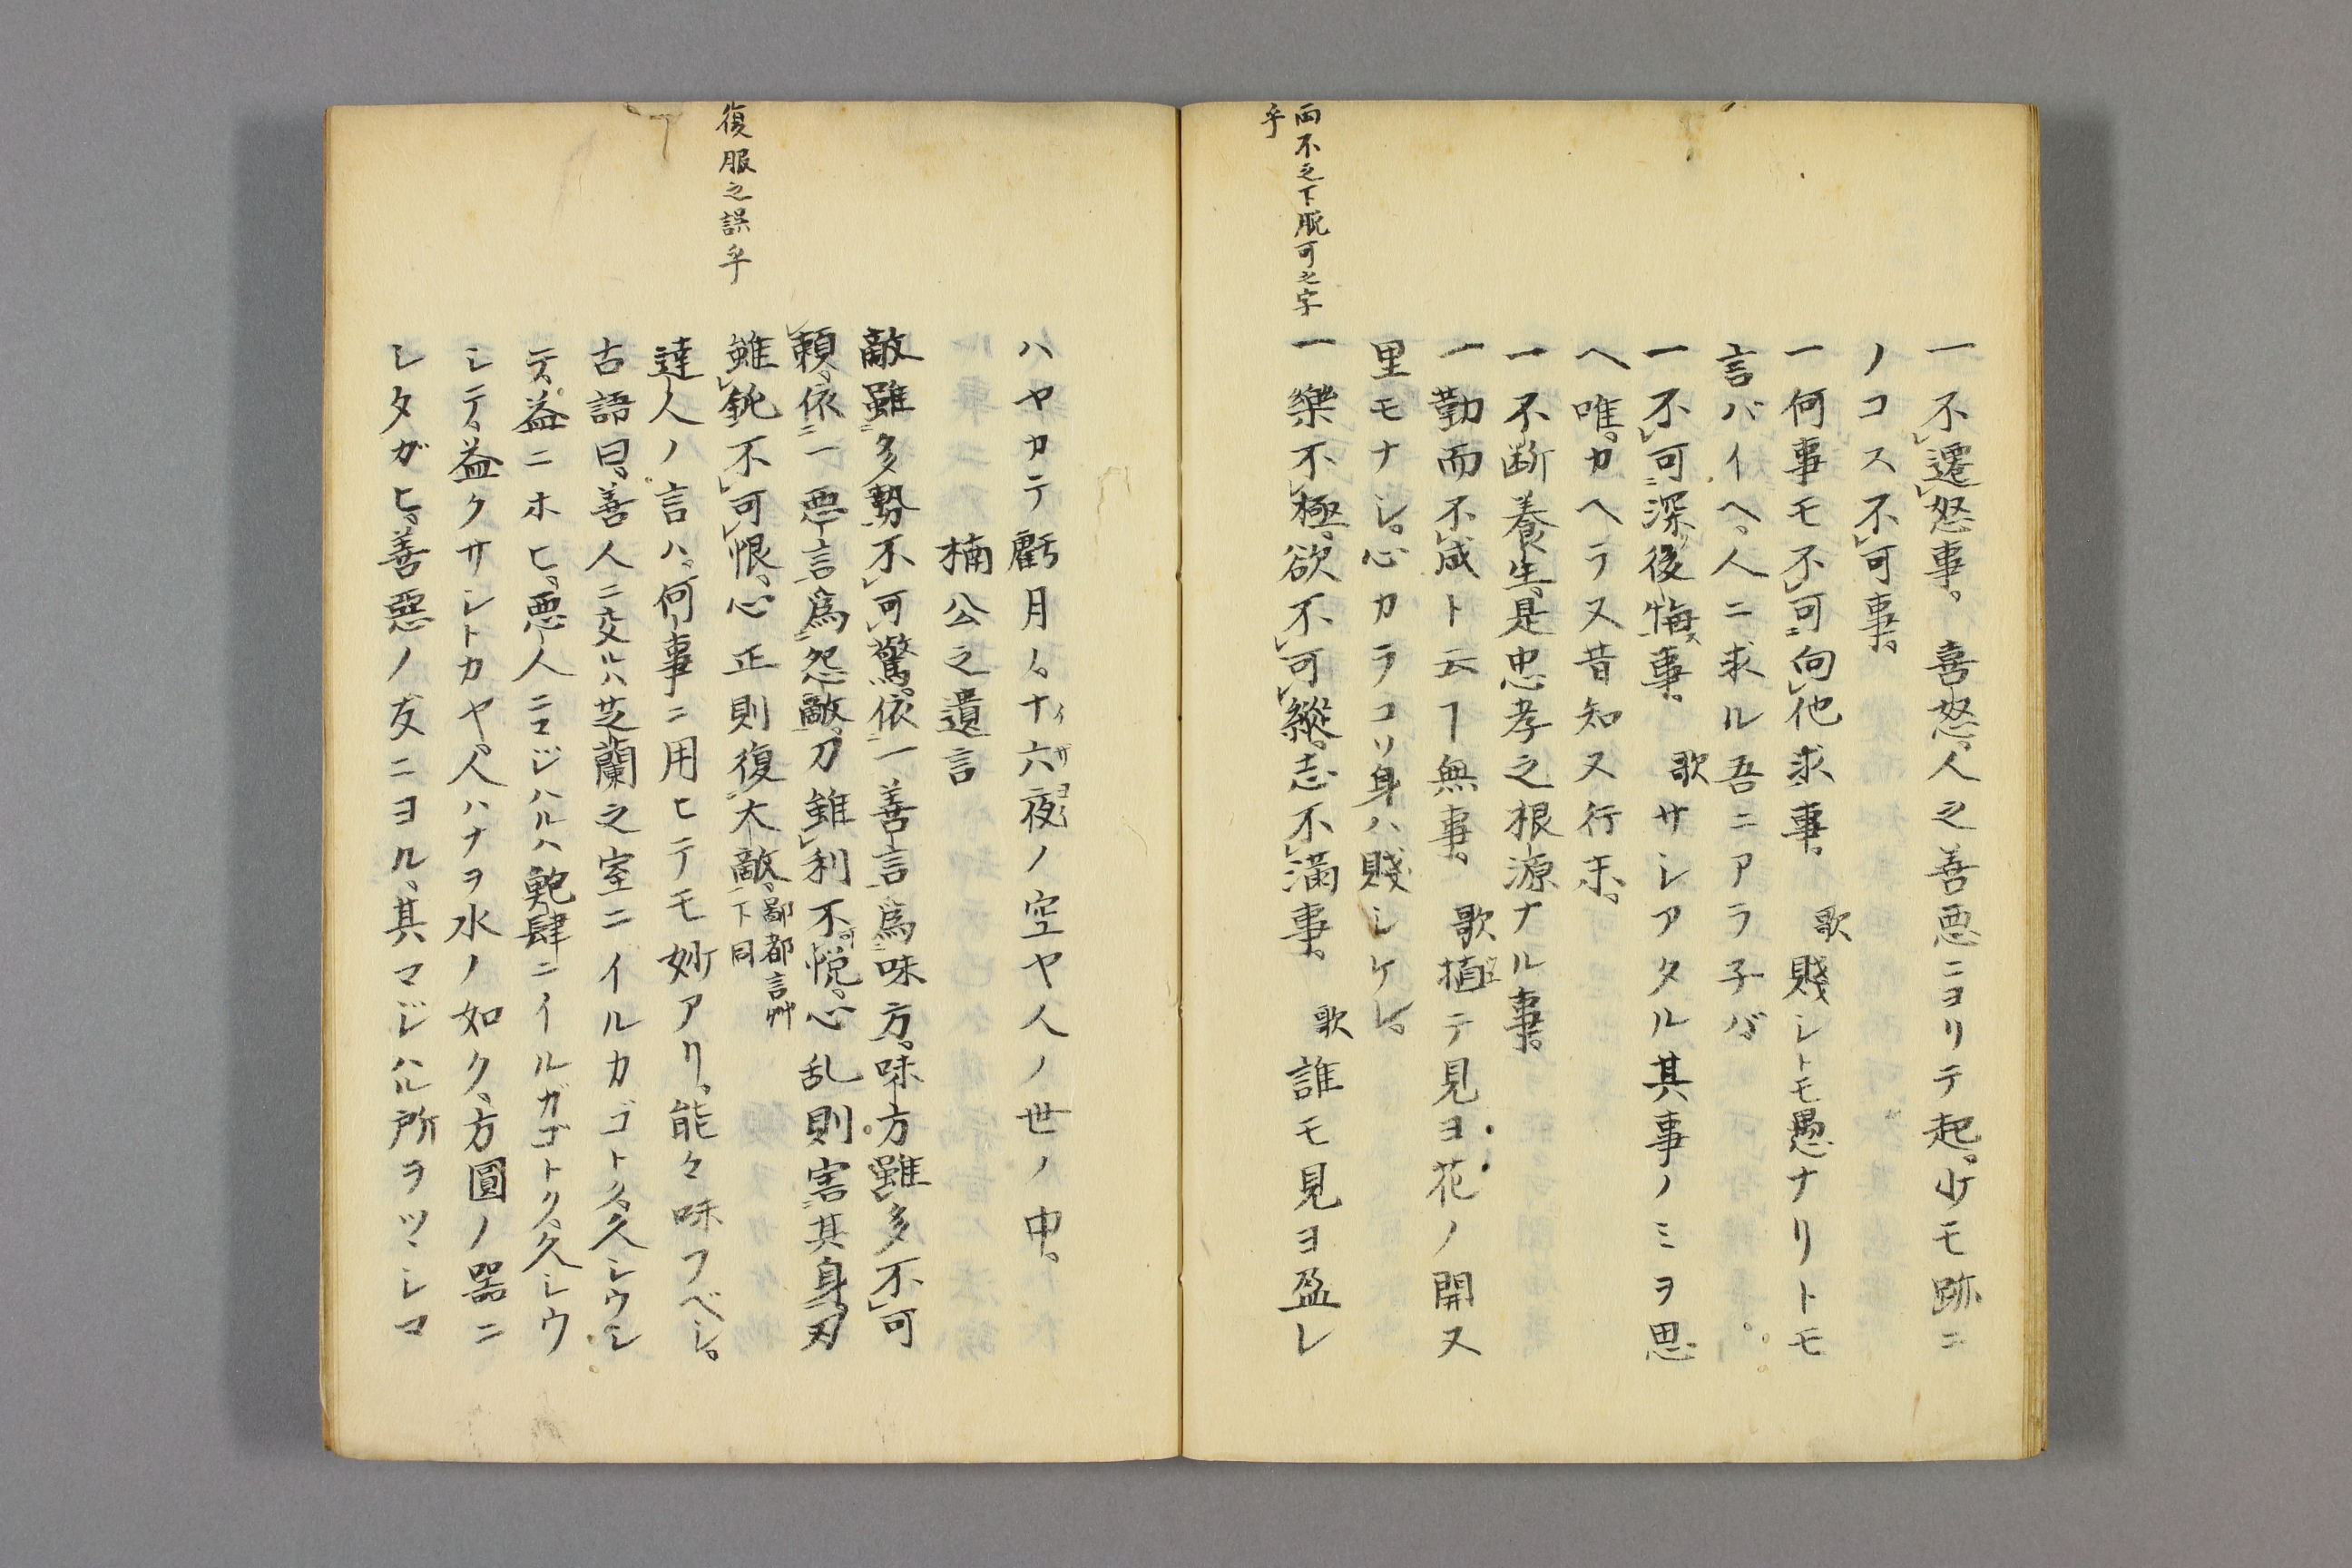 一不遷怒事。喜怒、人之善悪ニヨリテ起。少モ跡ニ
ノコス不可事。
一何事モ不可向他求事。 歌 賤シトモ愚ナリトモ
言バイヘ、人ニ求ル吾ニアラ子バ
一不可深後悔事。 歌 サレアタル其事ノミヲ思
ヘ唯。カヘラヌ昔知ヌ行末。
一不断養生、是忠孝之根源ナル事。
一勤而不成ト云ヿ無事。 歌 植テ見ヨ花ノ開ヌ
里モナシ。心カラコソ身ハ賤シケレ。
両不之下脱可之字
乎
一樂不極、欲不可縦、志不満事。 歌 誰モ見ヨ盈レ
ハヤカテ虧月ノ。十六夜ノ空ヤ人ノ世ノ中。
イサヨヒ
楠公之遺言
敵雖多勢不可驚。依一善言爲味方。味方雖多不可
頼。依一悪言爲怨敵。刀雖利不可悦。心乱則害其身。刃
雖鈍不可恨。心正則復大敵。鄙都言艸
下同
復服之誤乎
達人ノ言ハ。何事ニ用ヒテモ妙アリ。能々味フベシ。
古語曰。善人ニ交ルハ芝蘭之室ニイルカゴトク。久シウシ
テ。益ニホヒ。悪人ニマジハルハ鮑肆ニイルガゴトク。久シウ
シテ。益クサシトカヤ。人ハナヲ水ノ如ク、方圓ノ器ニ
シタガヒ。善惡ノ友ニヨル。其マジハル所ヲツヽシマ